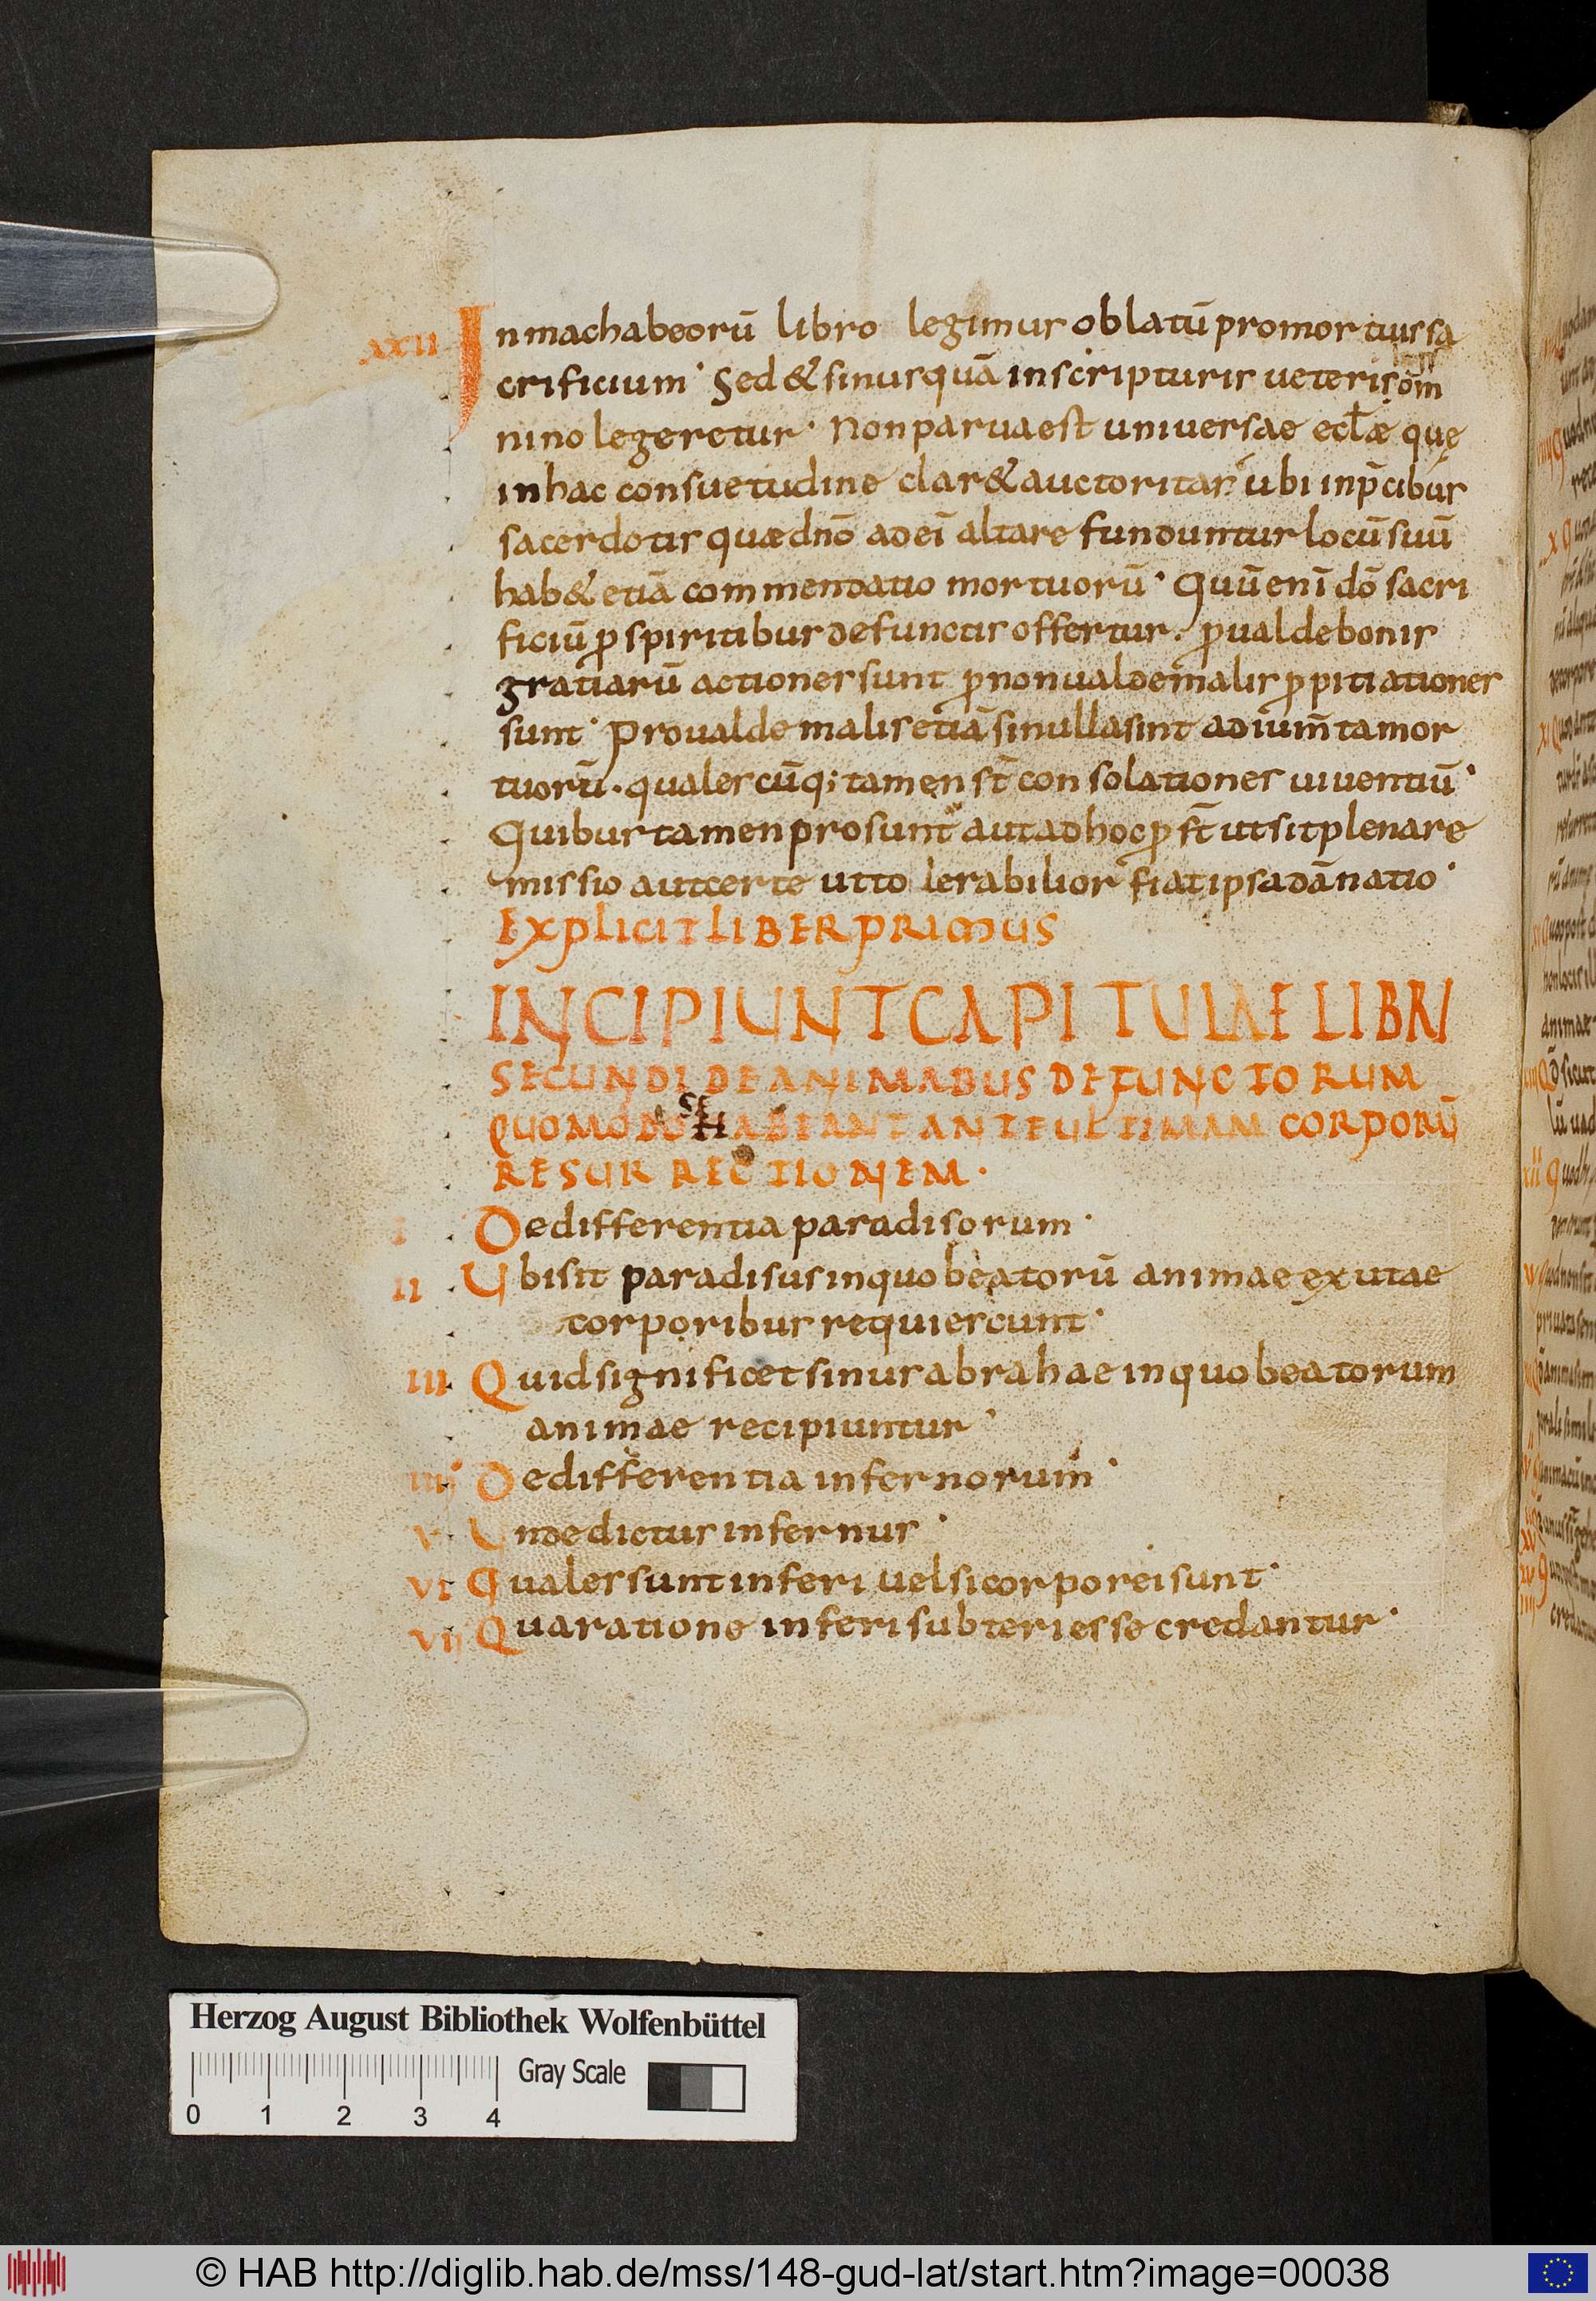 XXII In machabeorū libro legimus oblatū pro mortuis sa
crificium· Sed & si nusquā in scripturis ueteris om̄
nino legeretur· Non parua est uniuersae eccl̄æ quę
in hac consuetudine clar& auctoritas ubi in p̄cibus
sacerdotis quæ dn̄o ad eī altare funduntur locū suū
hab& etiā commendatio mortuorū· Quū enī dō sacri
ficiū ꝓ spiritibus defunctis offertur. ꝓ ualde bonis
gratiarū actiones sunt ꝓ non ualde malis ꝓpitiationes
sunt· Pro ualde malis etiā si nulla sint adium̄ta mor
tuorū. qualescūq; tamen st̄ consolationes uiuentiū·
Quibus tamen prosunt aut ad hoc ꝓst̄ ut sit plena re
missio aut certe ut tolerabilior fiat ipsa dānatio·
EXPLICIT LIBER PRIMUS
INCIPIUNT CAPITULAE LIBRI
SECUNDI DE ANIMABUS DEFUNCTORUM
QUOMODO SE HABEANT ANTE ULTIMAM CORPORŪ
RESURRECTIONEM·
I De differentia paradisorum·
II Ubi sit paradisus in quo beatorū animae exutae
corporibus requiescunt·
III Quid significet sinus abrahae in quo beatorum
animae recipiuntur·
IIII De differentia infernorum·
V Unde dictus infernus·
VI Quales sunt inferi uel si corporei sunt·
VII Qua ratione inferi sub teri esse credantur·
Herzog August Bibliothek Wolfenbüttel
Gray Scale
0 1 2 3 4
© HAB http://diglib.hab.de/mss/148-gud-lat/start.htm?image=00038